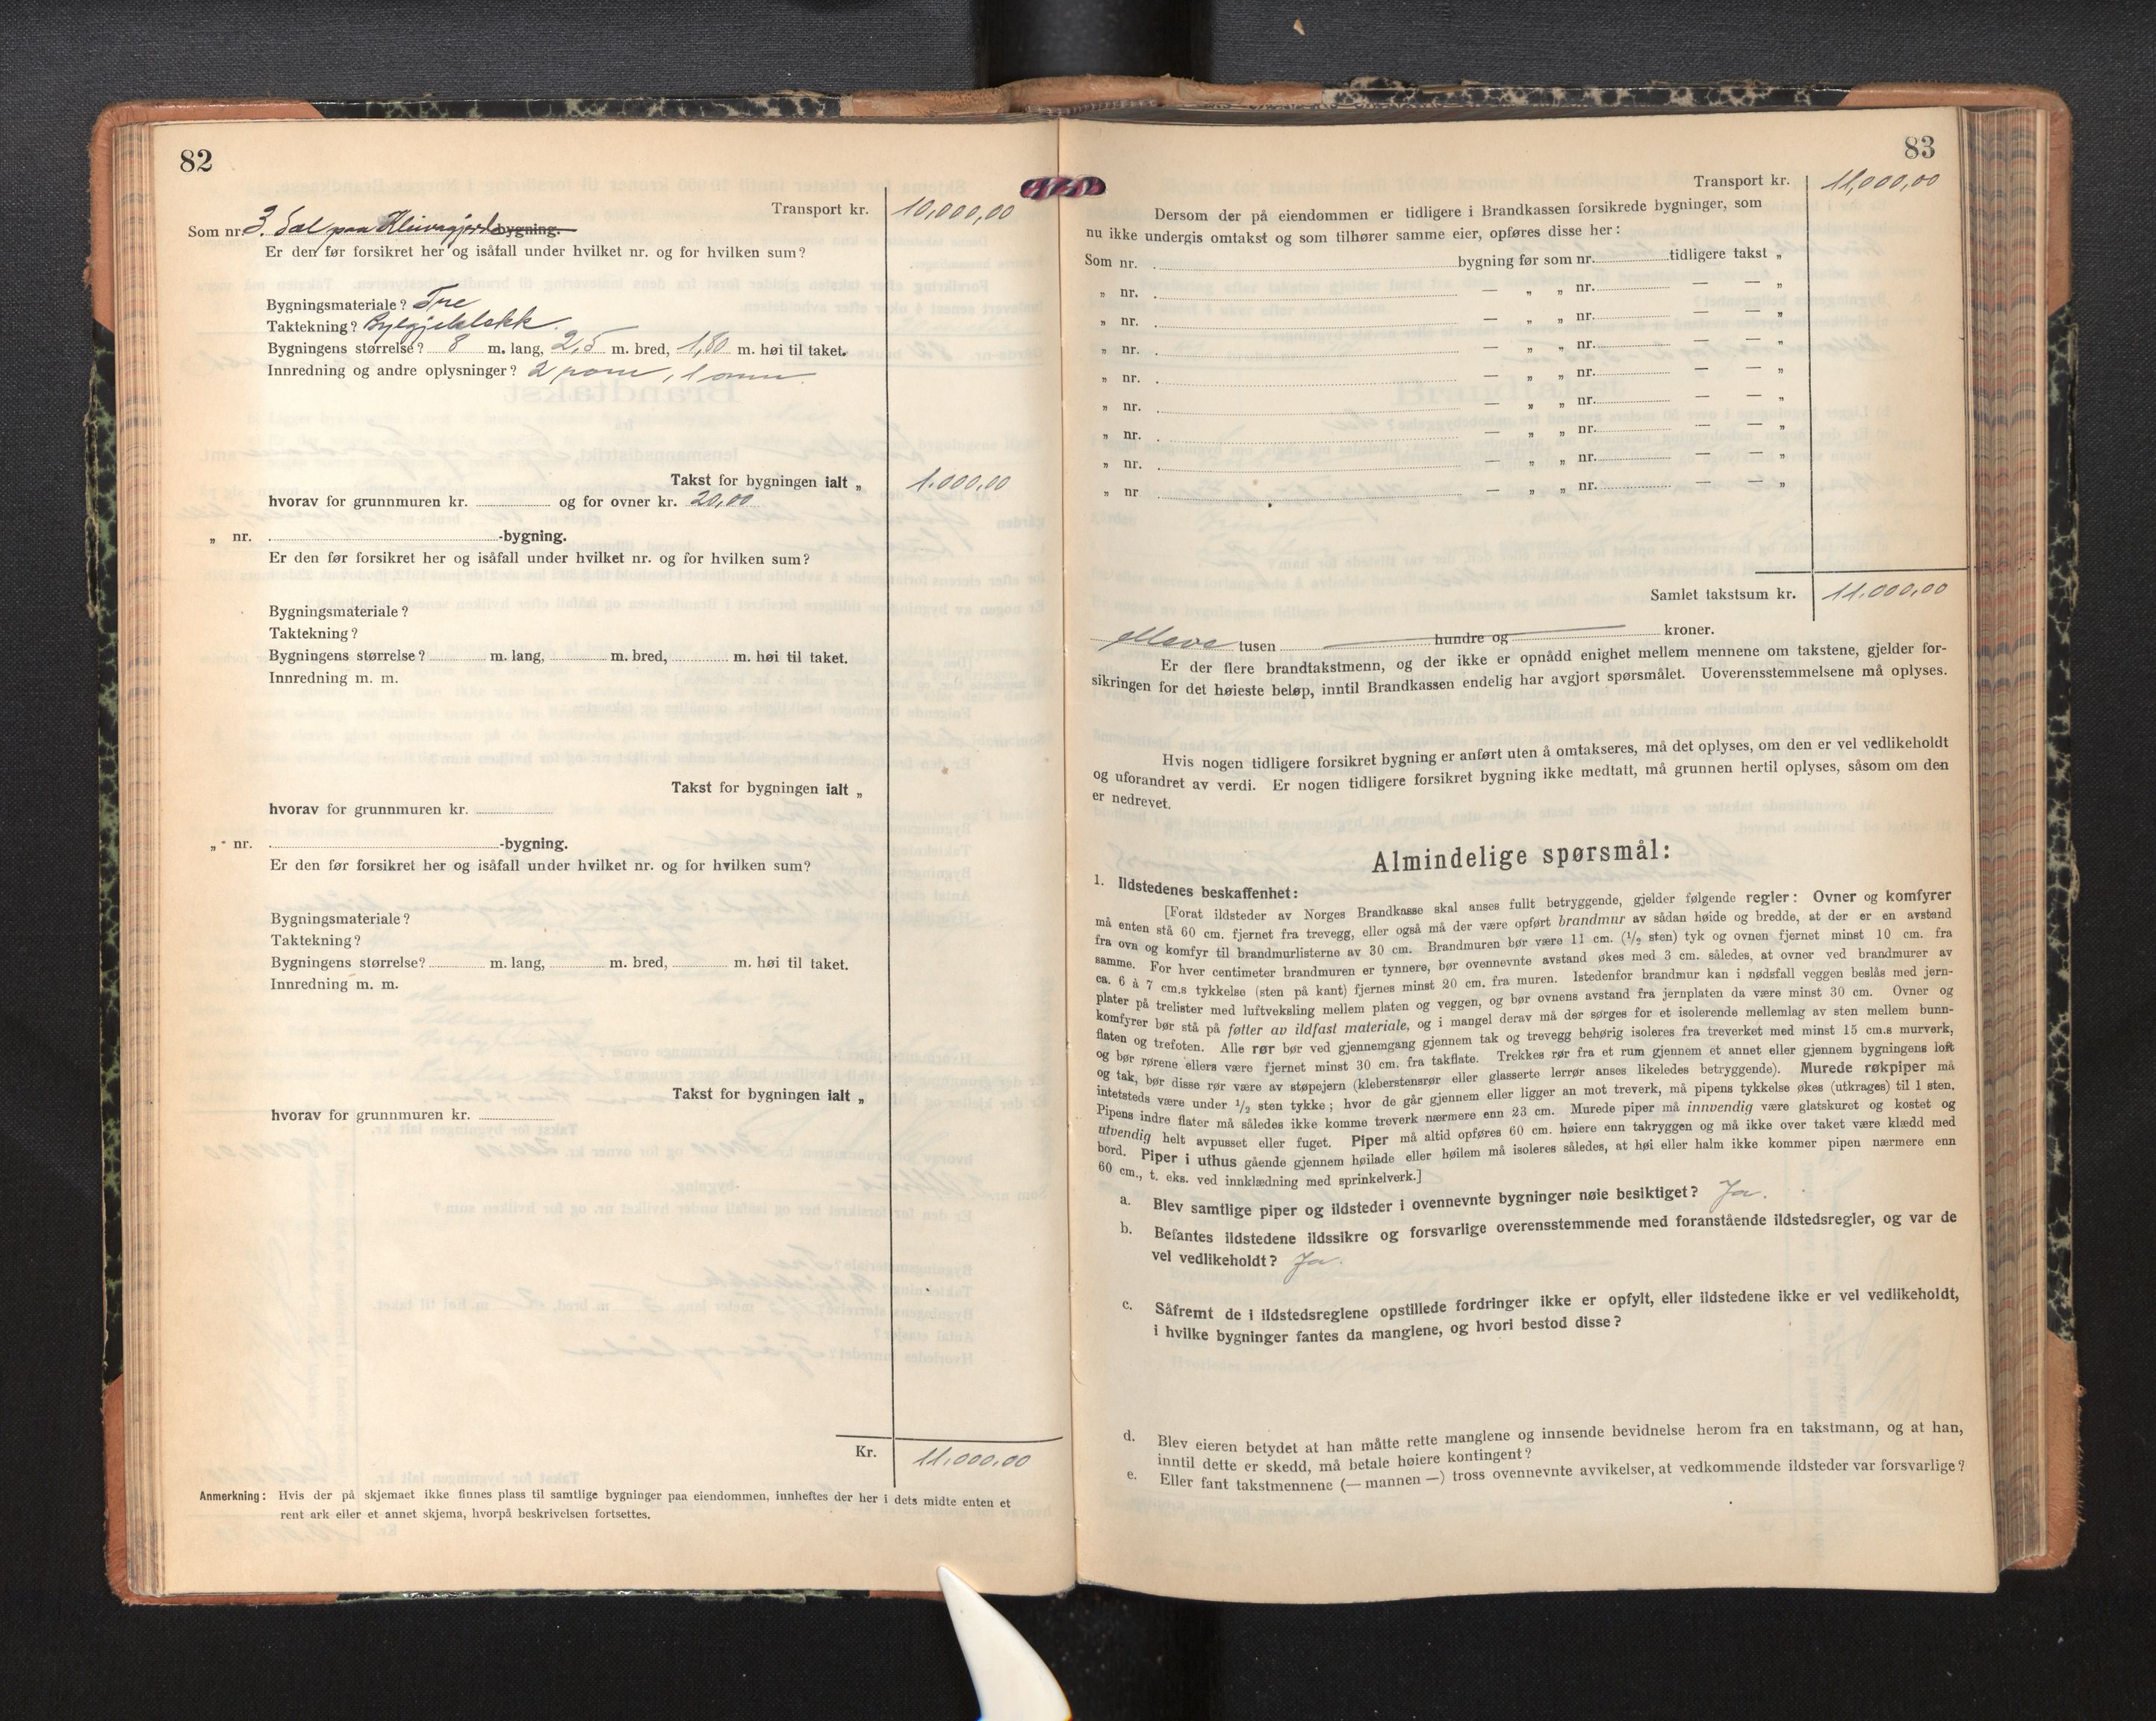 82
Transport kr. 10,000,00
Som nr. 3. Sæl paa Kleivagjerde bygning.
Er den før forsikret her og isåfall under hvilket nr. og for hvilken sum?
Bygningsmateriale? Tre
Taktekning? Bylgjeblekk.
Bygningens størrelse? 8 m. lang, 2,5 m. bred, 1,80 m. høi til taket.
Innredning og andre oplysninger? 2 rom, 1 omn.
Takst for bygningen ialt „ 1.000,00
hvorav for grunnmuren kr. og for ovner kr. 20,00
„ nr. -bygning.
Er den før forsikret her og isåfall under hvilket nr. og for hvilken sum?
Bygningsmateriale?
Taktekning?
Bygningens størrelse? m. lang, m. bred, m. høi til taket.
Innredning m. m.
Takst for bygningen ialt „
hvorav for grunnmuren kr.
„ nr. -bygning.
Er den før forsikret her og isåfall under hvilket nr. og for hvilken sum?
Bygningsmateriale?
Taktekning?
Bygningens størrelse? m. lang, m. bred, m. høi til taket.
Innredning m. m.
Takst for bygningen ialt „
hvorav for grunnmuren kr.
Kr. 11.000,00
Anmerkning: Hvis der på skjemaet ikke finnes plass til samtlige bygninger paa eiendommen, innheftes der her i dets midte enten et
rent ark eller et annet skjema, hvorpå beskrivelsen fortsettes.
83
Transport kr. 11,000,00
Dersom der på eiendommen er tidligere i Brandkassen forsikrede bygninger, som
nu ikke undergis omtakst og som tilhører samme eier, opføres disse her:
Som nr. bygning før som nr. tidligere takst „
„ nr. — „ „ nr. — — „
„ nr. — „ „ nr. — — „
„ nr. — „ „ nr. — — „
„ nr. — „ „ nr. — — „
„ nr. — „ „ nr. — — „
„ nr. — „ „ nr. — — „
„ nr. — „ „ nr. — — „
„ nr — „ „ nr. — — „
Samlet takstsum kr. 11.000,00
elleve tusen hundre og kroner.
Er der flere brandtakstmenn, og der ikke er opnådd enighet mellem mennene om takstene, gjelder for-
sikringen for det høieste beløp, inntil Brandkassen endelig har avgjort spørsmålet. Uoverensstemmelsene må oplyses.
Hvis nogen tidligere forsikret bygning er anført uten å omtakseres, må det oplyses, om den er vel vedlikeholdt
og uforandret av verdi. Er nogen tidligere forsikret bygning ikke medtatt, må grunnen hertil oplyses, såsom om den
er nedrevet.
Almindelige spørsmål:
1. Ildstedenes beskaffenhet:
[Forat ildsteder av Norges Brandkasse skal anses fullt betryggende, gjelder følgende regler: Ovner og komfyrer
må enten stå 60 cm. fjernet fra trevegg, eller også må der være opført brandmur av sådan høide og bredde, at der er en avstand
fra ovn og komfyr til brandmurlisterne av 30 cm. Brandmuren bør være 11 cm. (1/2 sten) tyk og ovnen fjernet minst 10 cm. fra
samme. For hver centimeter brandmuren er tynnere, bør ovennevnte avstand økes med 3 cm. således, at ovner ved brandmurer av
ca. 6 à 7 cm.s tykkelse (sten på kant) fjernes minst 20 cm. fra muren. Istedenfor brandmur kan i nødsfall veggen beslås med jern-
plater på trelister med luftveksling mellem platen og veggen, og bør ovnens avstand fra jernplaten da være minst 30 cm. Ovner og
komfyrer bør stå på føtter av ildfast materiale, og i mangel derav må der sørges for et isolerende mellemlag av sten mellem bunn-
flaten og trefoten. Alle rør bør ved gjennemgang gjennem tak og trevegg behørig isoleres fra treverket med minst 15 cm.s murverk,
og bør rørene ellers være fjernet minst 30 cm. fra takflate. Trekkes rør fra et rum gjennem et annet eller gjennem bygningens loft
og tak, bør disse rør være av støpejern (kleberstensrør eller glasserte lerrør anses likeledes betryggende). Murede røkpiper må
intetsteds være under 1/2 sten tykke; hvor de går gjennem eller ligger an mot treverk, må pipens tykkelse økes (utkrages) til 1 sten.
Pipens indre flater må således ikke komme treverk nærmere enn 23 cm. Murede piper må innvendig være glatskuret og kostet og
utvendig helt avpusset eller fuget. Piper må altid opføres 60 cm. høiere enn takryggen og må ikke over taket være klædd med
bord. Piper i uthus gående gjennem høilade eller høilem må isoleres således, at høi eller halm ikke kommer pipen nærmere enn
60 cm., t. eks. ved innklædning med sprinkelverk.]
a. Blev samtlige piper og ildsteder i ovennevnte bygninger nøie besiktiget? Ja.
b. Befantes ildstedene ildssikre og forsvarlige overensstemmende med foranstående ildstedsregler, og var de
vel vedlikeholdt? Ja.
c. Såfremt de i ildstedsreglene opstillede fordringer ikke er opfylt, eller ildstedene ikke er vel vedlikeholdt,
i hvilke bygninger fantes da manglene, og hvori bestod disse?
d. Blev eieren betydet at han måtte rette manglene og innsende bevidnelse herom fra en takstmann, og at han,
inntil dette er skedd, må betale høiere kontingent?
e. Eller fant takstmennene (— mannen —) tross ovennevnte avvikelser, at vedkommende ildsteder var forsvarlige?